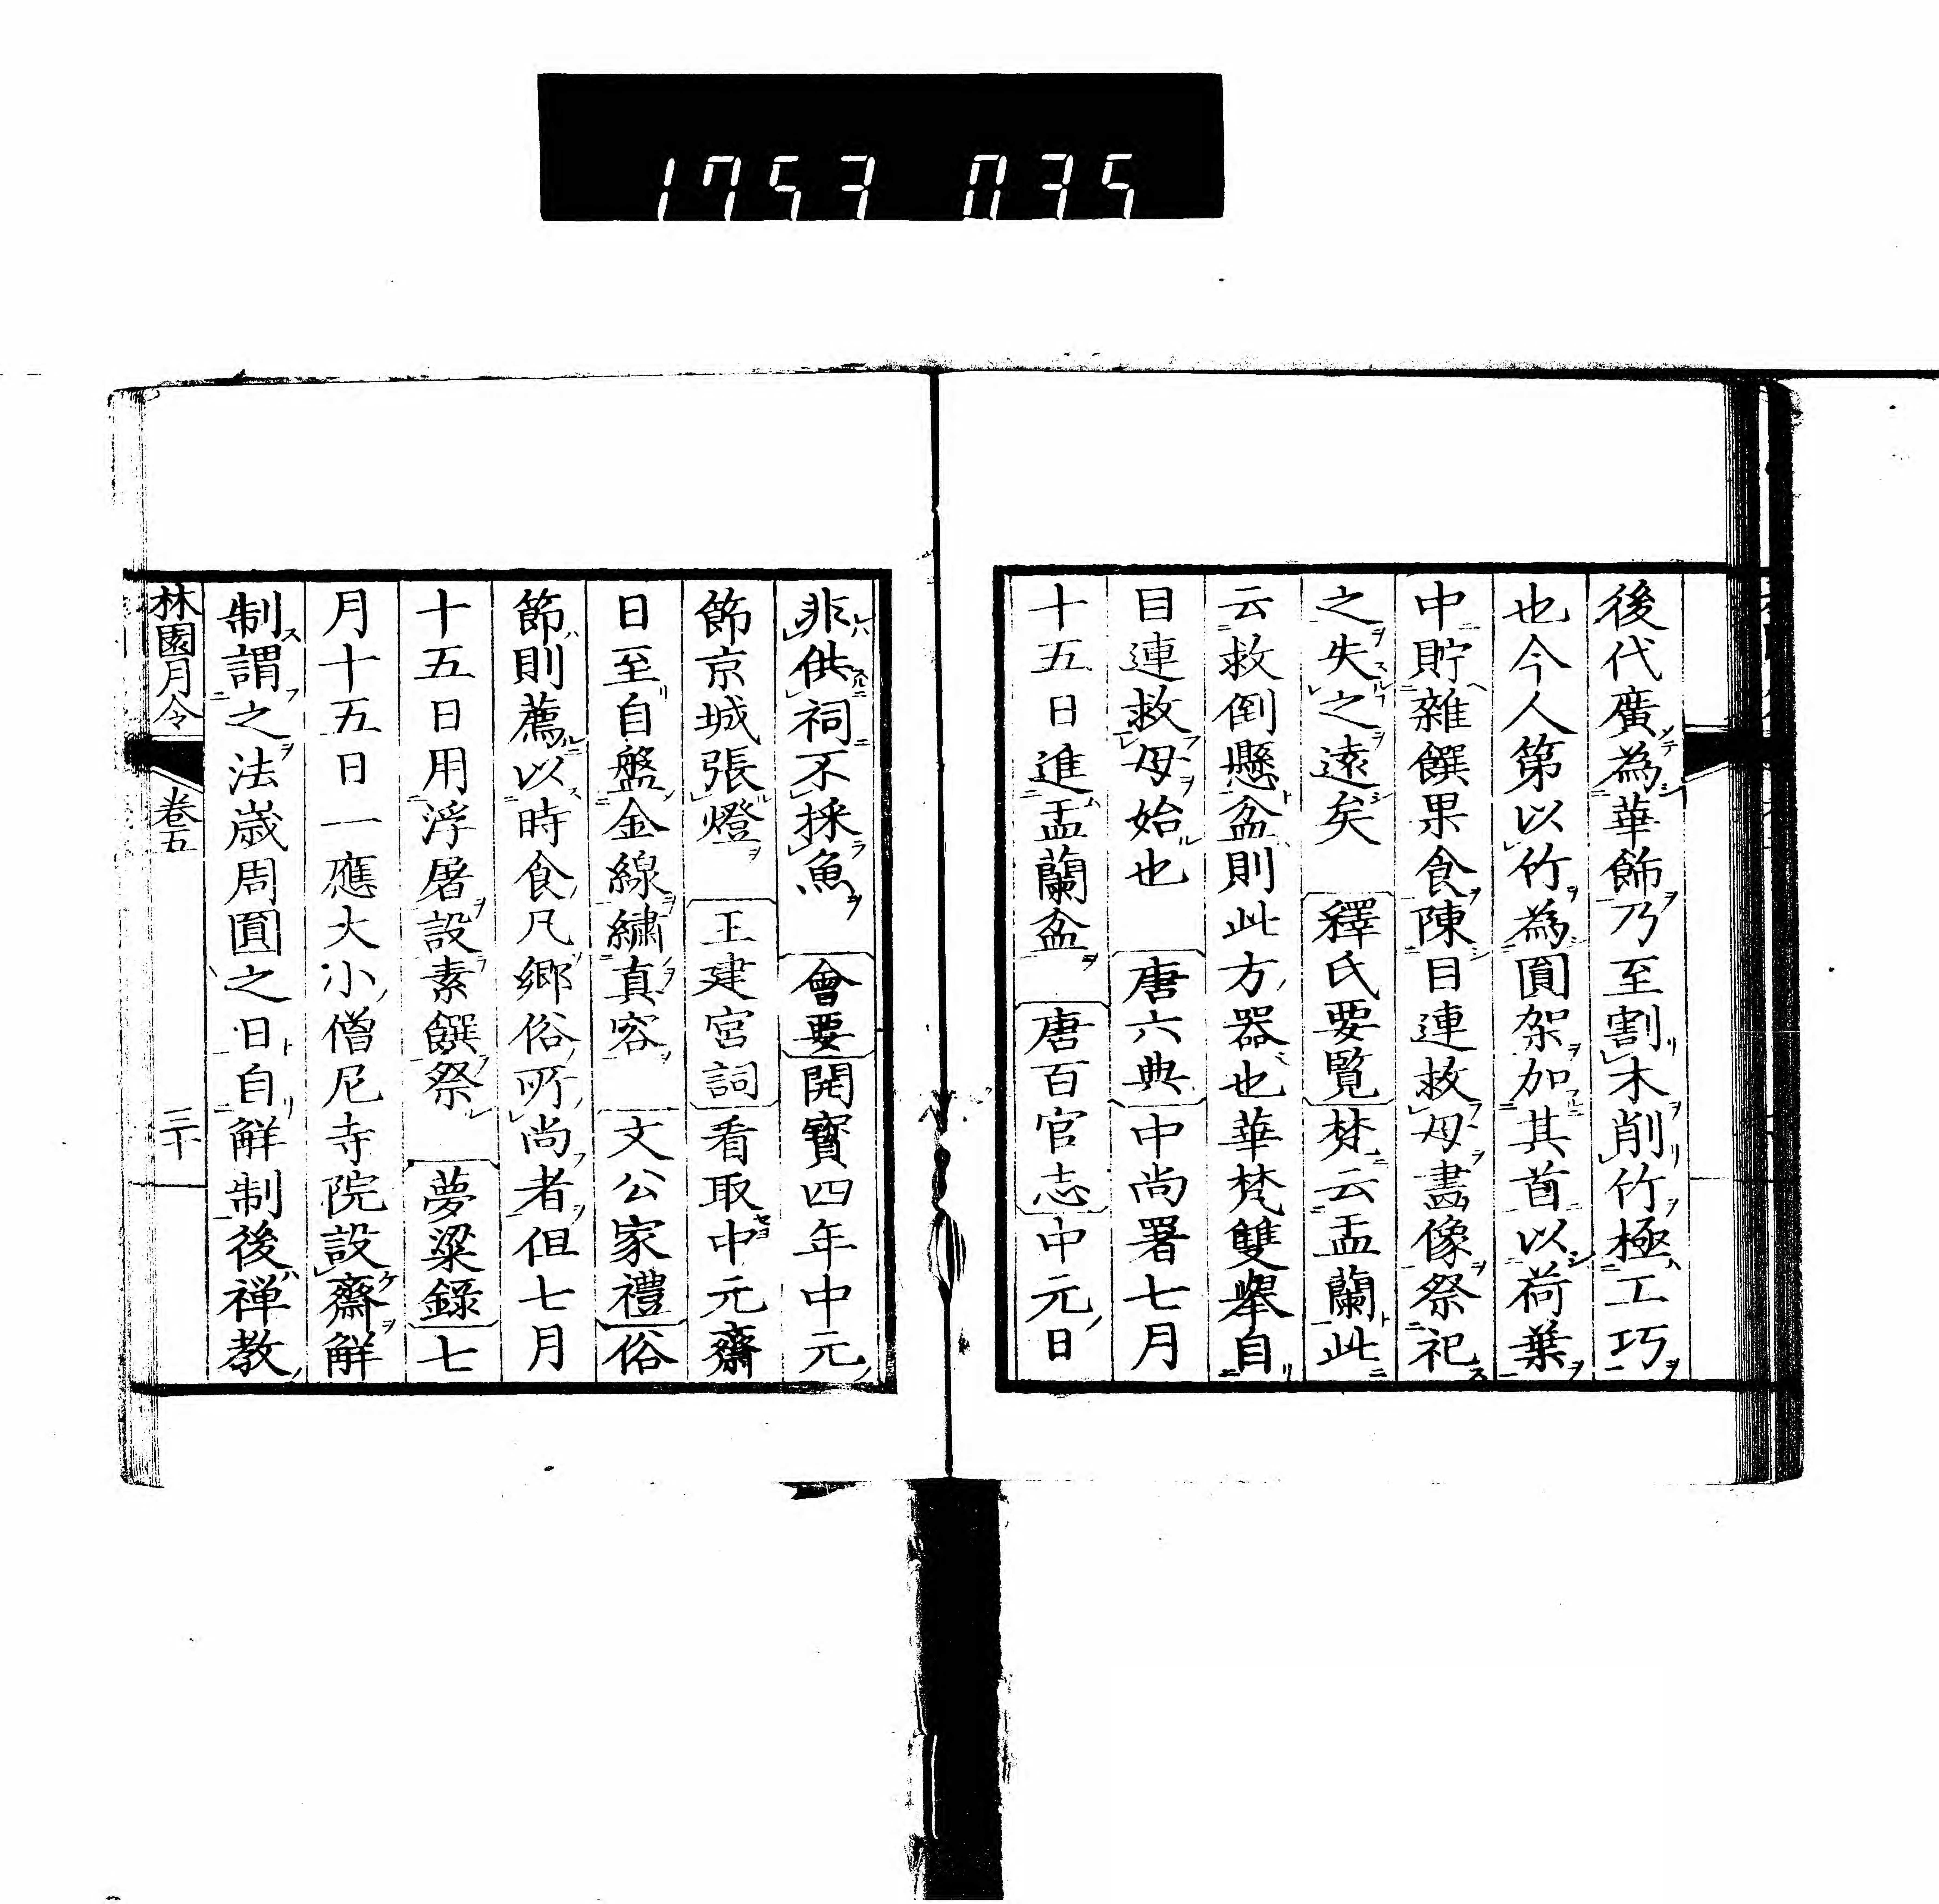 1753 035
後代廣為華飾乃至割木削竹極工巧
也今人第以竹為圓架加其首以荷葉
中貯雜饌果食陳目連救母畫像祭祀
之失之遠矣 釋氏要覧梵云盂蘭此
云救倒懸盆則此方器也華梵雙舉自
目連救母始也 唐六典中尚署七月
十五日進盂蘭盆 唐百官志中元日
非供祠不採魚 會要開寳四年中元
節京城張燈 王建宮詞看取中元齋
日至自盤金線繍真容 文公家禮俗
節則薦以時食凡郷俗所尚者但七月
十五日用浮屠設素饌祭 夢粱錄七
月十五日一應大小僧尼寺院設齋解
制謂之法歳周圓之日自解制後禅教
林園月令 卷五 三十